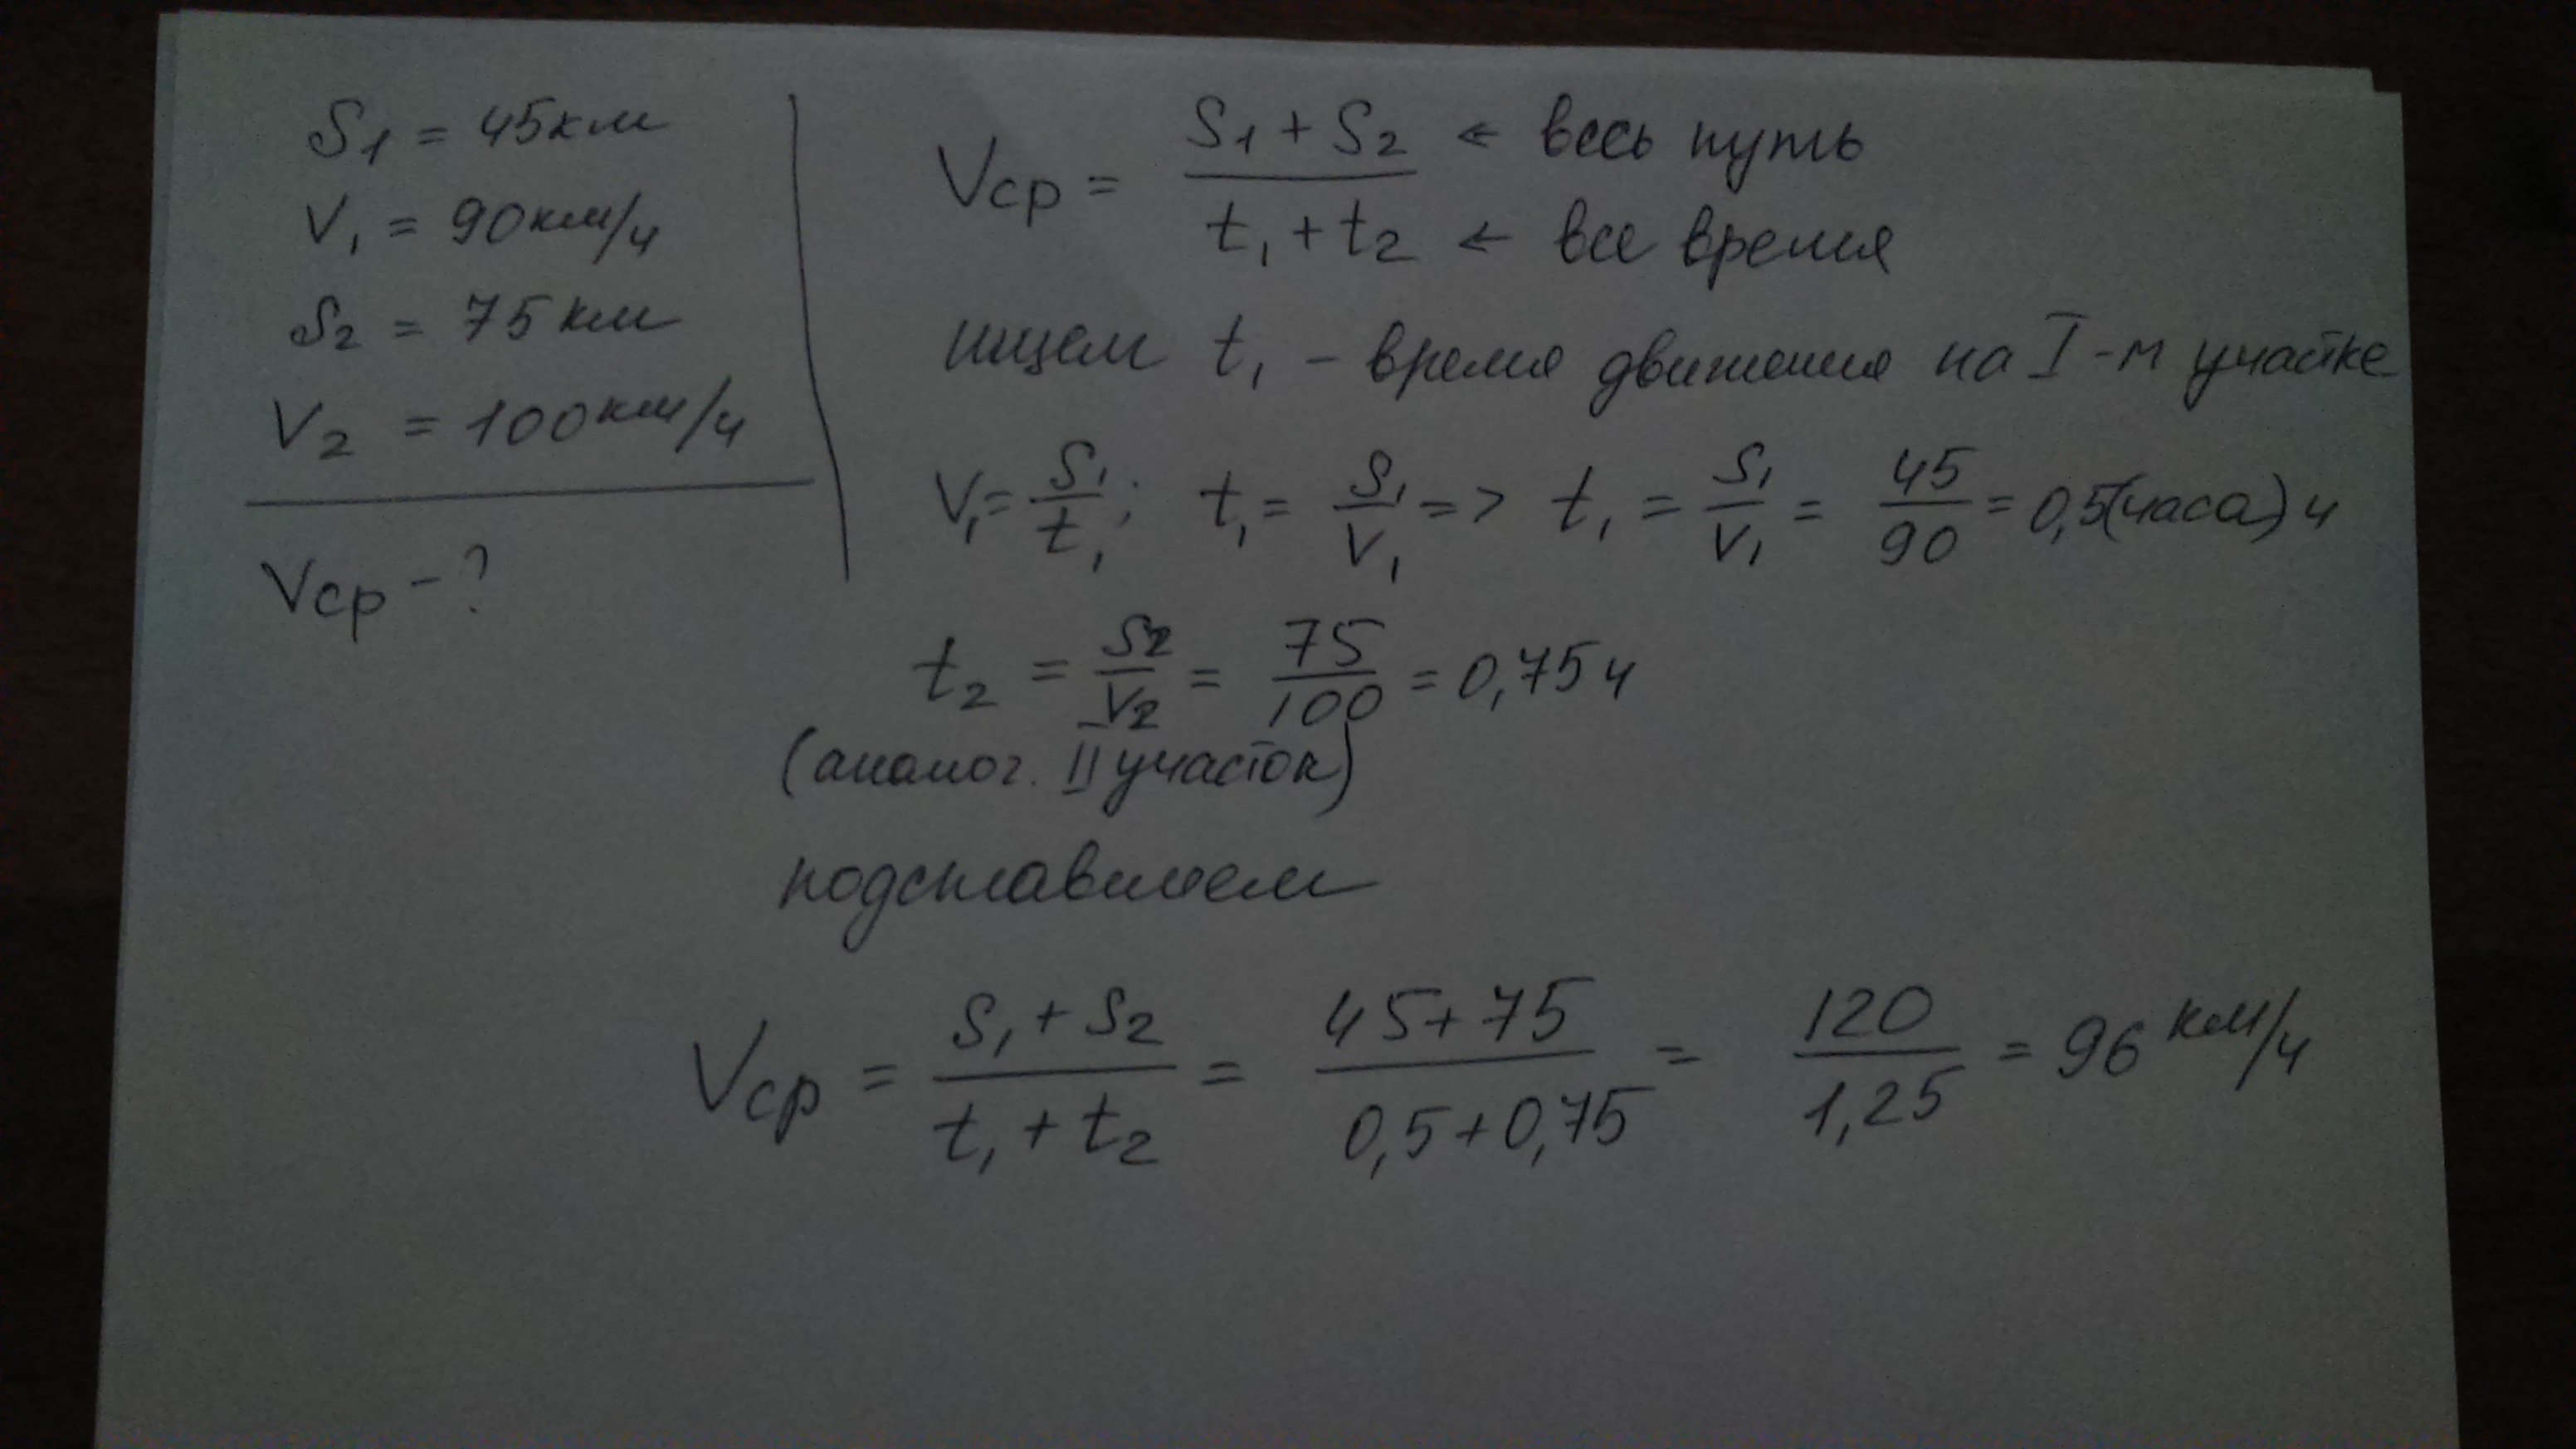 S1 = 45км
V1 = 90км/ч
S2 = 75км
V2 = 100км/ч
Vср - ?
Vср = (S1 + S2) / (t1 + t2)
← весь путь
← все время
ищем t1 – время движения на I-м участке
V1 = S1/t1; t1 = S1/V1 => t1 = S1/V1 = 45/90 = 0,5(часа) ч
t2 = S2/V2 = 75/100 = 0,75 ч
(аналог. II участок)
подставляем
Vср = (S1 + S2) / (t1 + t2) = (45+75) / (0,5+0,75) = 120/1,25 = 96 км/ч